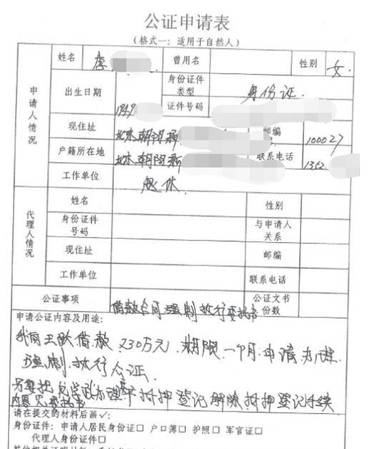 公证申请表
（格式一：适用于自然人）
申请人情况
姓名 李 曾用名 性别 女
出生日期 19 身份证件类型 身份证
证件号码
现住址 北京朝阳 邮编 100027
户籍所在地 北京朝阳 联系电话 13
工作单位 退休
代理人情况
姓名 性别
身份证件号码 与申请人关系
现住址 邮编
工作单位 联系电话
公证事项 借款合同 强制执行 公证文书份数
申请公证内容及用途：
我向王 借款 230万元，期限一个月，申请办理
强制执行公证。
办理 抵押登记 解除抵押登记手续
请在提交的材料后画√：
身份证件：申请人居民身份证□ 户口簿□ 护照□ 军官证□
代理人身份证□